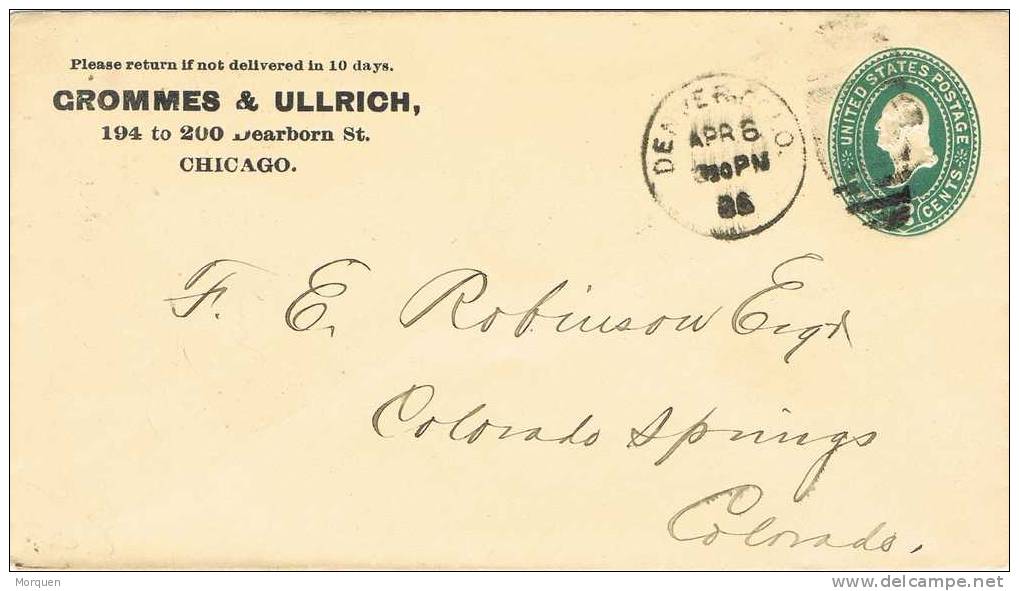 Please return if not delivered in 10 days.
GROMMES & ULLRICH,
194 to 200 Dearborn St.
CHICAGO.
DENVER, COLO.
APR 6
30 PM
86
UNITED STATES POSTAGE
CENTS
F. E. Robinson Esqr
Colorado Springs
Colorado.
Morquen
delcampe.net